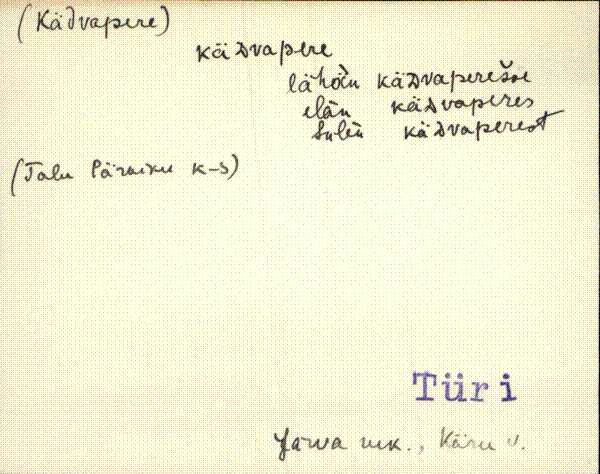 (Kädvapere)
kädvapere
lähän kädvaperešše
elän kädvaperes
tulen kädvaperest
(Talu Pärniku k-s)
Türi
Järva mk., Käru v.